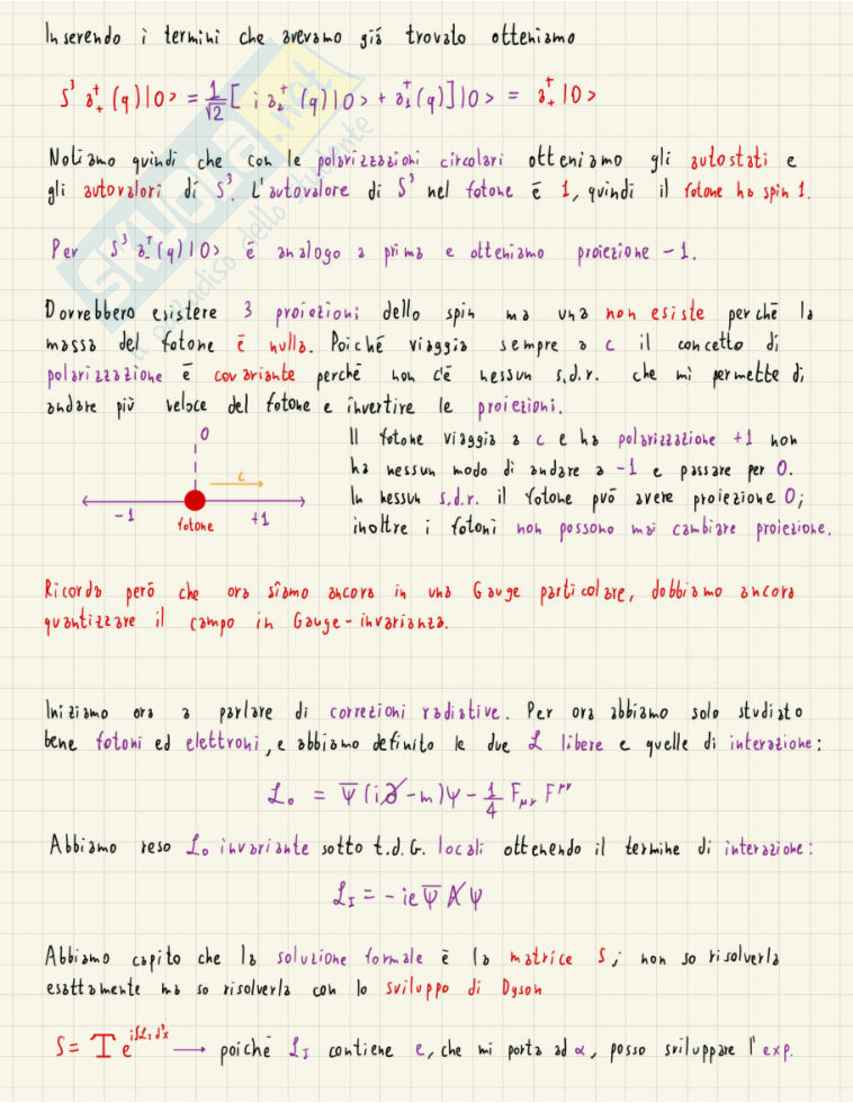 Inserendo i termini che avevamo già trovato otteniamo
S³ a₊†(q)|0> = 1/√2 [ i a₂†(q)|0> + a₁†(q)]|0> = a₊†|0>
Notiamo quindi che con le polarizzazioni circolari otteniamo gli autostati e
gli autovalori di S³. L'autovalore di S³ nel fotone è 1, quindi il fotone ha spin 1.
Per S³ a₋†(q)|0> è analogo a prima e otteniamo proiezione -1.
Dovrebbero esistere 3 proiezioni dello spin ma una non esiste perché la
massa del fotone è nulla. Poiché viaggia sempre a c il concetto di
polarizzazione è covariante perché non c'è nessun s.d.r. che mi permette di
andare più veloce del fotone e invertire le proiezioni.
0
c
-1
+1
fotone
Il fotone viaggia a c e ha polarizzazione +1 non
ha nessun modo di andare a -1 e passare per 0.
In nessun s.d.r. il fotone può avere proiezione 0;
inoltre i fotoni non possono mai cambiare proiezione.
Ricorda però che ora siamo ancora in una Gauge particolare, dobbiamo ancora
quantizzare il campo in Gauge-invarianza.
Iniziamo ora a parlare di correzioni radiative. Per ora abbiamo solo studiato
bene fotoni ed elettroni, e abbiamo definito le due ℒ libere e quelle di interazione:
ℒ₀ = ψ̄(i∂̸-m)ψ - 1/4 Fμν F^μν
Abbiamo reso ℒ₀ invariante sotto t.d.G. locali ottenendo il termine di interazione:
ℒI = -ieψ̄ A̸ ψ
Abbiamo capito che la soluzione formale è la matrice S; non so risolverla
esattamente ma so risolverla con lo sviluppo di Dyson
S = T e^{i∫ℒI d⁴x} → poiché ℒI contiene e, che mi porta ad α, posso sviluppare l'exp.
skuola.net
il paradiso dello studente